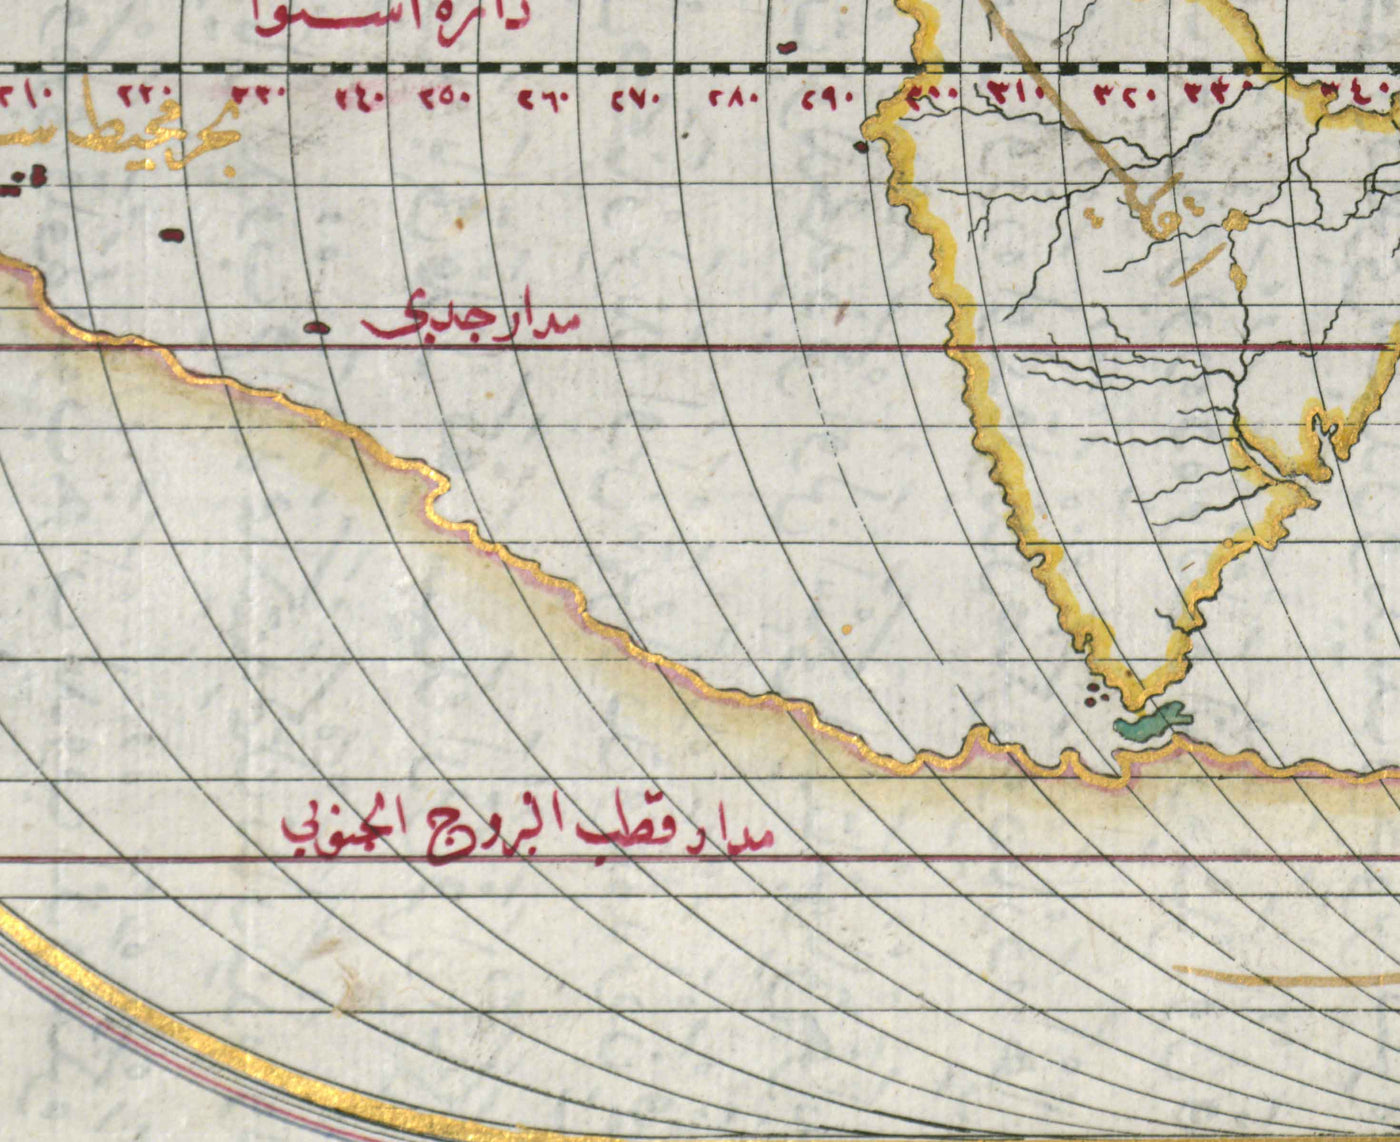 دائره استوا
٢١٠ ٢٢٠ ٢٣٠ ٢٤٠ ٢٥٠ ٢٦٠ ٢٧٠ ٢٨٠ ٢٩٠ ٣٠٠ ٣١٠ ٣٢٠ ٣٣٠ ٣٤٠
بحر محيط
مدار جدى
مدار قطب البروج الجنوبي